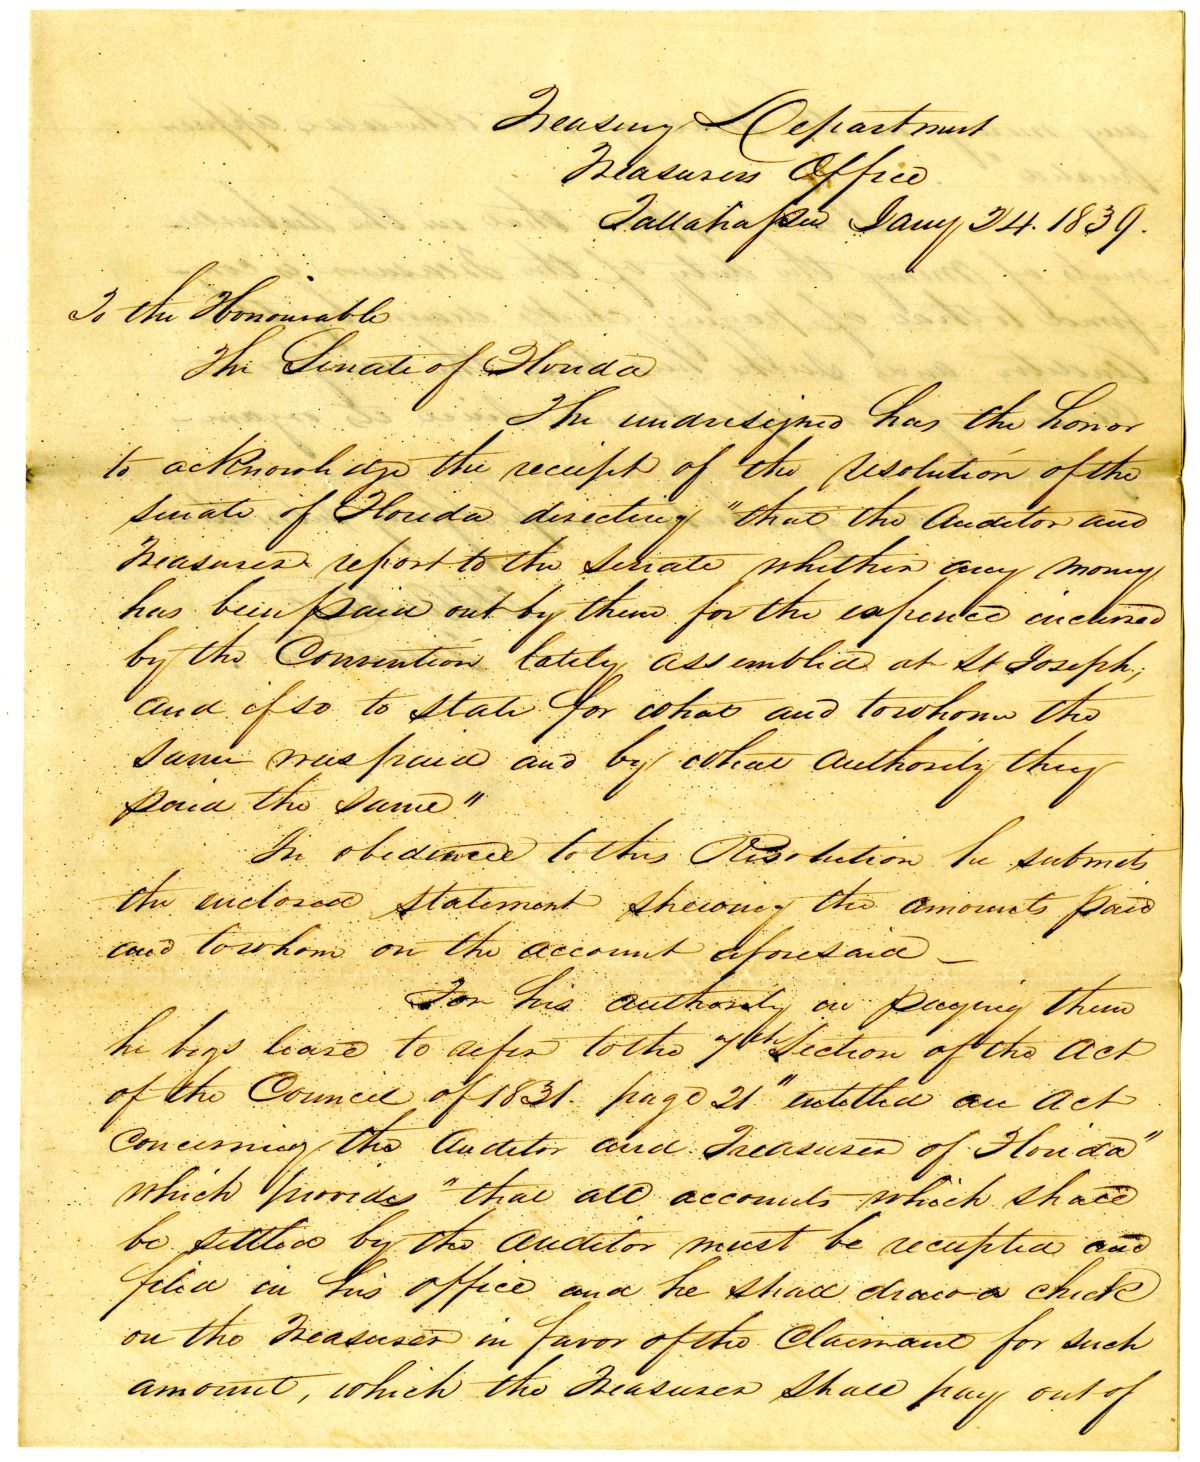 Treasury Department
Treasurers Office
Tallahassee Jany 24. 1839.
To the Honourable
The Senate of Florida
The undersigned has the honor
to acknowledge the receipt of the resolution of the
Senate of Florida directing "that the Auditor and
Treasurer report to the Senate whether any money
has been paid out by them for the expence incurred
by the Convention lately assembled at St Joseph,
and if so to state for what and to whom the
same was paid and by what authority they
paid the same"
In obedience to this Resolution he submits
the enclosed statement shewing the amounts paid
and to whom on the account aforesaid —
For his authority in paying them
he begs leave to refer to the 7th Section of the Act
of the Council of 1831. page 21 "entitled an Act
concerning the Auditor and Treasurer of Florida"
which provides "that all accounts which shall
be settled by the Auditor must be receipted and
filed in his office and he shall draw a check
on the Treasurer in favor of the Claimant for such
amount, which the Treasurer shall pay out of